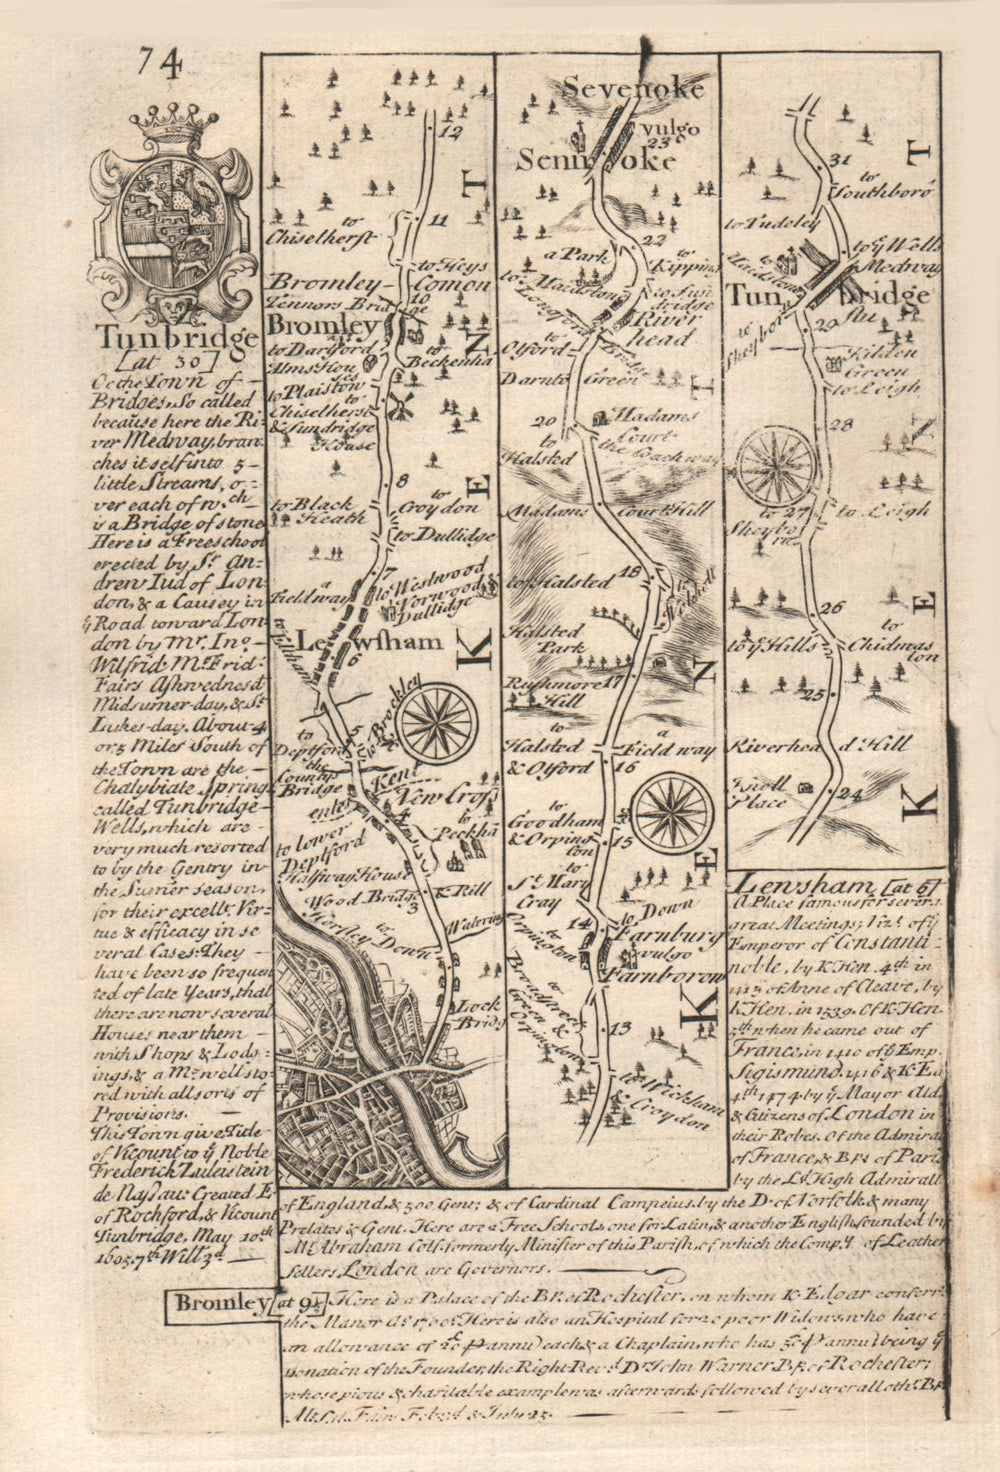 74
Tunbridge
[at 30]
Oc the Town of
Bridges, So called
because here the Ri-
ver Medway, bran
ches itself into 5
little Streams, o-
ver each of wch
is a Bridge of stone
Here is a Freeschool
erected by Sr. An-
drew Iud of Lon-
don, & a Causey in
ye Road toward Lon
don by Mr. Ino.
Wilfrid. Mt. Frid.
Fairs Ashwednesd
Midsumer-day, & St.
Lukes-day. About 4
or 5 Miles South of
the Town are the
Chalybiate Springs
called Tunbridge
Wells, which are
very much resorted
to by the Gentry in
the Sumer Season,
for their excellt. Vir-
tue & efficacy in se
veral Cases. They
have been so frequen
ted of late Years, that
there are now several
Houses near them
with Shops & Lodg-
ings, & a Mt. well sto-
red with all sorts of
Provisions.
This Town give Title
of Vicount to ye Noble
Frederick Zuleistein
de Nassau. Created E.
of Rochford, & Vicount
Tunbridge, May 10th
1695. 7th Will 3d.
12
11
to
Chiselherst
to Heys
Bromley Comon
10
Tennors Bridge
Bromley
to Dartford
to
Beckenha
Alms Houses
to Plaistow
to
Chiselherst
& Sundridge
House
8
to Black
Heath
to
Croydon
to Dullidge
7
a
Field way
to Westwood
Norwood &
Dullidge
Lewsham
to Eltham
6
to Brockley
5
to
Deptford
the
County
Bridge
Kent
enter
New Cross
to lower
Deptford
to
Peckha
Halfway House
Wood Bridg
3
R Rill
Watering
Horsley to Down
Lock
Bridg
KENT
Sevenoke
vulgo
23
Sennoke
22
a Park
to
Kippins
to Maidston
to Sun
dridge
Longford
River
head
Otford
Bridg
Darnto Green
20
Madams
Court
the Coach way
to
Halsted
Madams Court Hill
to Halsted
18
Halsted
Park
Rushmore
Hill
17
to
Halsted
& Otford
a
Field way
16
to
Goodham
& Orping
ton
15
to
St Mary
Cray
14
to Down
to
Orpington
Farnburg
vulgo
Farnborow
to
Broadstreet
Green &
Orpington
13
to Wickham
& Croydon
KENT
31
to
Southboro
to Tudeley
to ye Wells
to
Maidston
Medway
Tunbridge
to
Sheyborn
29
flu
Hilden
Green
to Leigh
28
to 27
to Leigh
Sheybo
rn
26
to ye Hills
to
Chidings
ton
25
Riverhead Hill
Knoll
Place
24
KENT
Lewsham, [at 6]
A Place famous for severa
great Meetings; Vizt. of ye
Emperor of Constanti-
noble, by K Hen. 4th in
of Anne of Cleave, by
K Hen. in 1539. Of K Hen.
5th when he came out of
France, in 1410 of ye Emp.
Sigismund. 1416 & K Ed
4th 1474 by ye Mayor Ald.
& Citizens of London in
their Robes. Of the Admiral
of France, & Bp. of Paris
by the Ld. High Admirall
of England, & 500 Gent; & of Cardinal Campeius, by the D. of Norfolk & many
Prelates & Gent. Here are 2 Free Schools, one for Latin, & another English, founded by
Mr. Abraham Colf, formerly Minister of this Parish, of which the Compy. of Leather
Sellers, London are Governors.
Bromley [at 9½] Here is a Palace of the Bp. of Rochester, on whom K. Edgar conferr'd
the Manor Ao. 1700. Here is also an Hospital for 20 poor Widows, who have
an allowance of 20£ P annu each, & a Chaplain, who has 50£ P annu, being ye
Donation of the Founder, the Right Revd. Dr. John Warner Bp. of Rochester;
whose pious & charitable example was afterwards followed by severall othr. Bps.